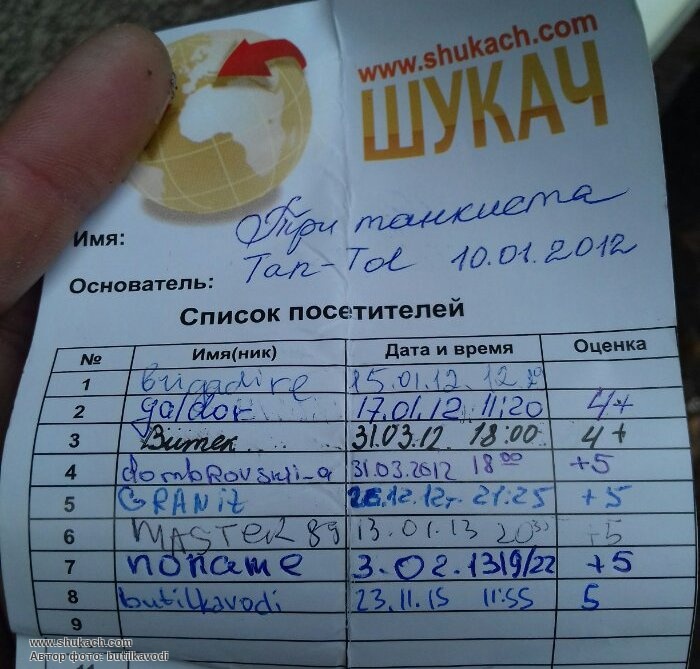 www.shukach.com
ШУКАЧ
Имя: Три танкиста
Основатель: Tan-Tol 10.01.2012
Список посетителей
№ Имя(ник) Дата и время Оценка
1 brigadire 15.01.12. 12.
2 galdor 17.01.12 11:20 4+
3 Витек 31.03.12. 18:00 4+
4 dombrovskii-a 31.03.2012 18 00 +5
5 GRANiT 26.12.12г. 21:25 +5
6 MASTER 89 13.01.13 20 35 +5
7 noname 3.02.13 19/22 +5
8 butilkavodi 23.11.15 11:55 5
9
www.shukach.com
Автор фото: butilkavodi